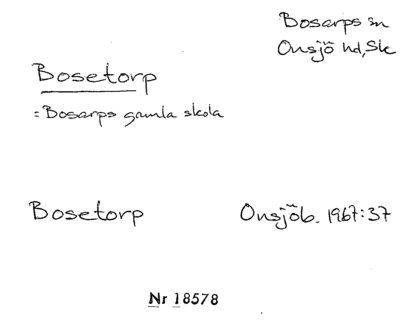 Bosarps sn
Onsjö hd, Sk
Bosetorp
= Bosarps gamla skola
Bosetorp Onsjöb. 1967:37
Nr 18578